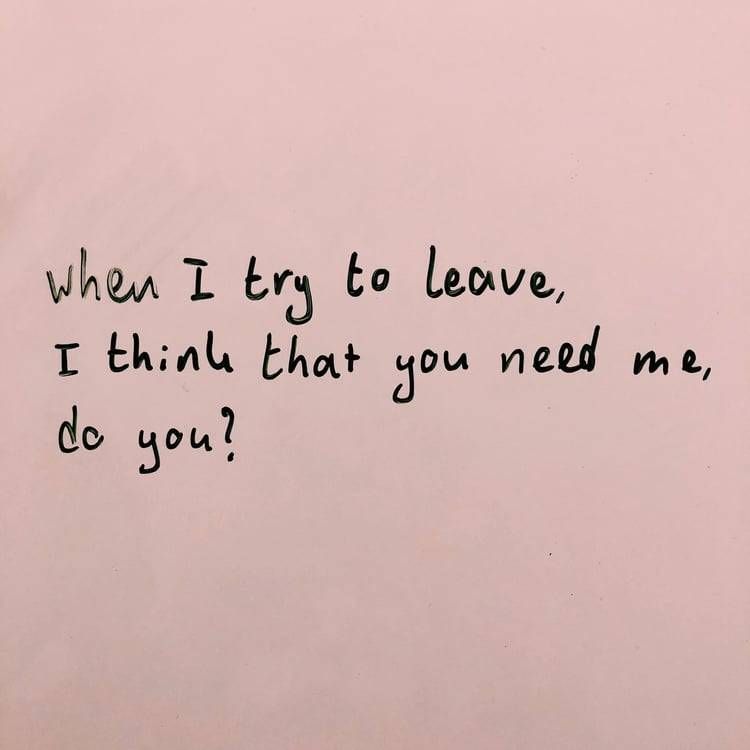 when I try to leave,
I think that you need me,
do you?